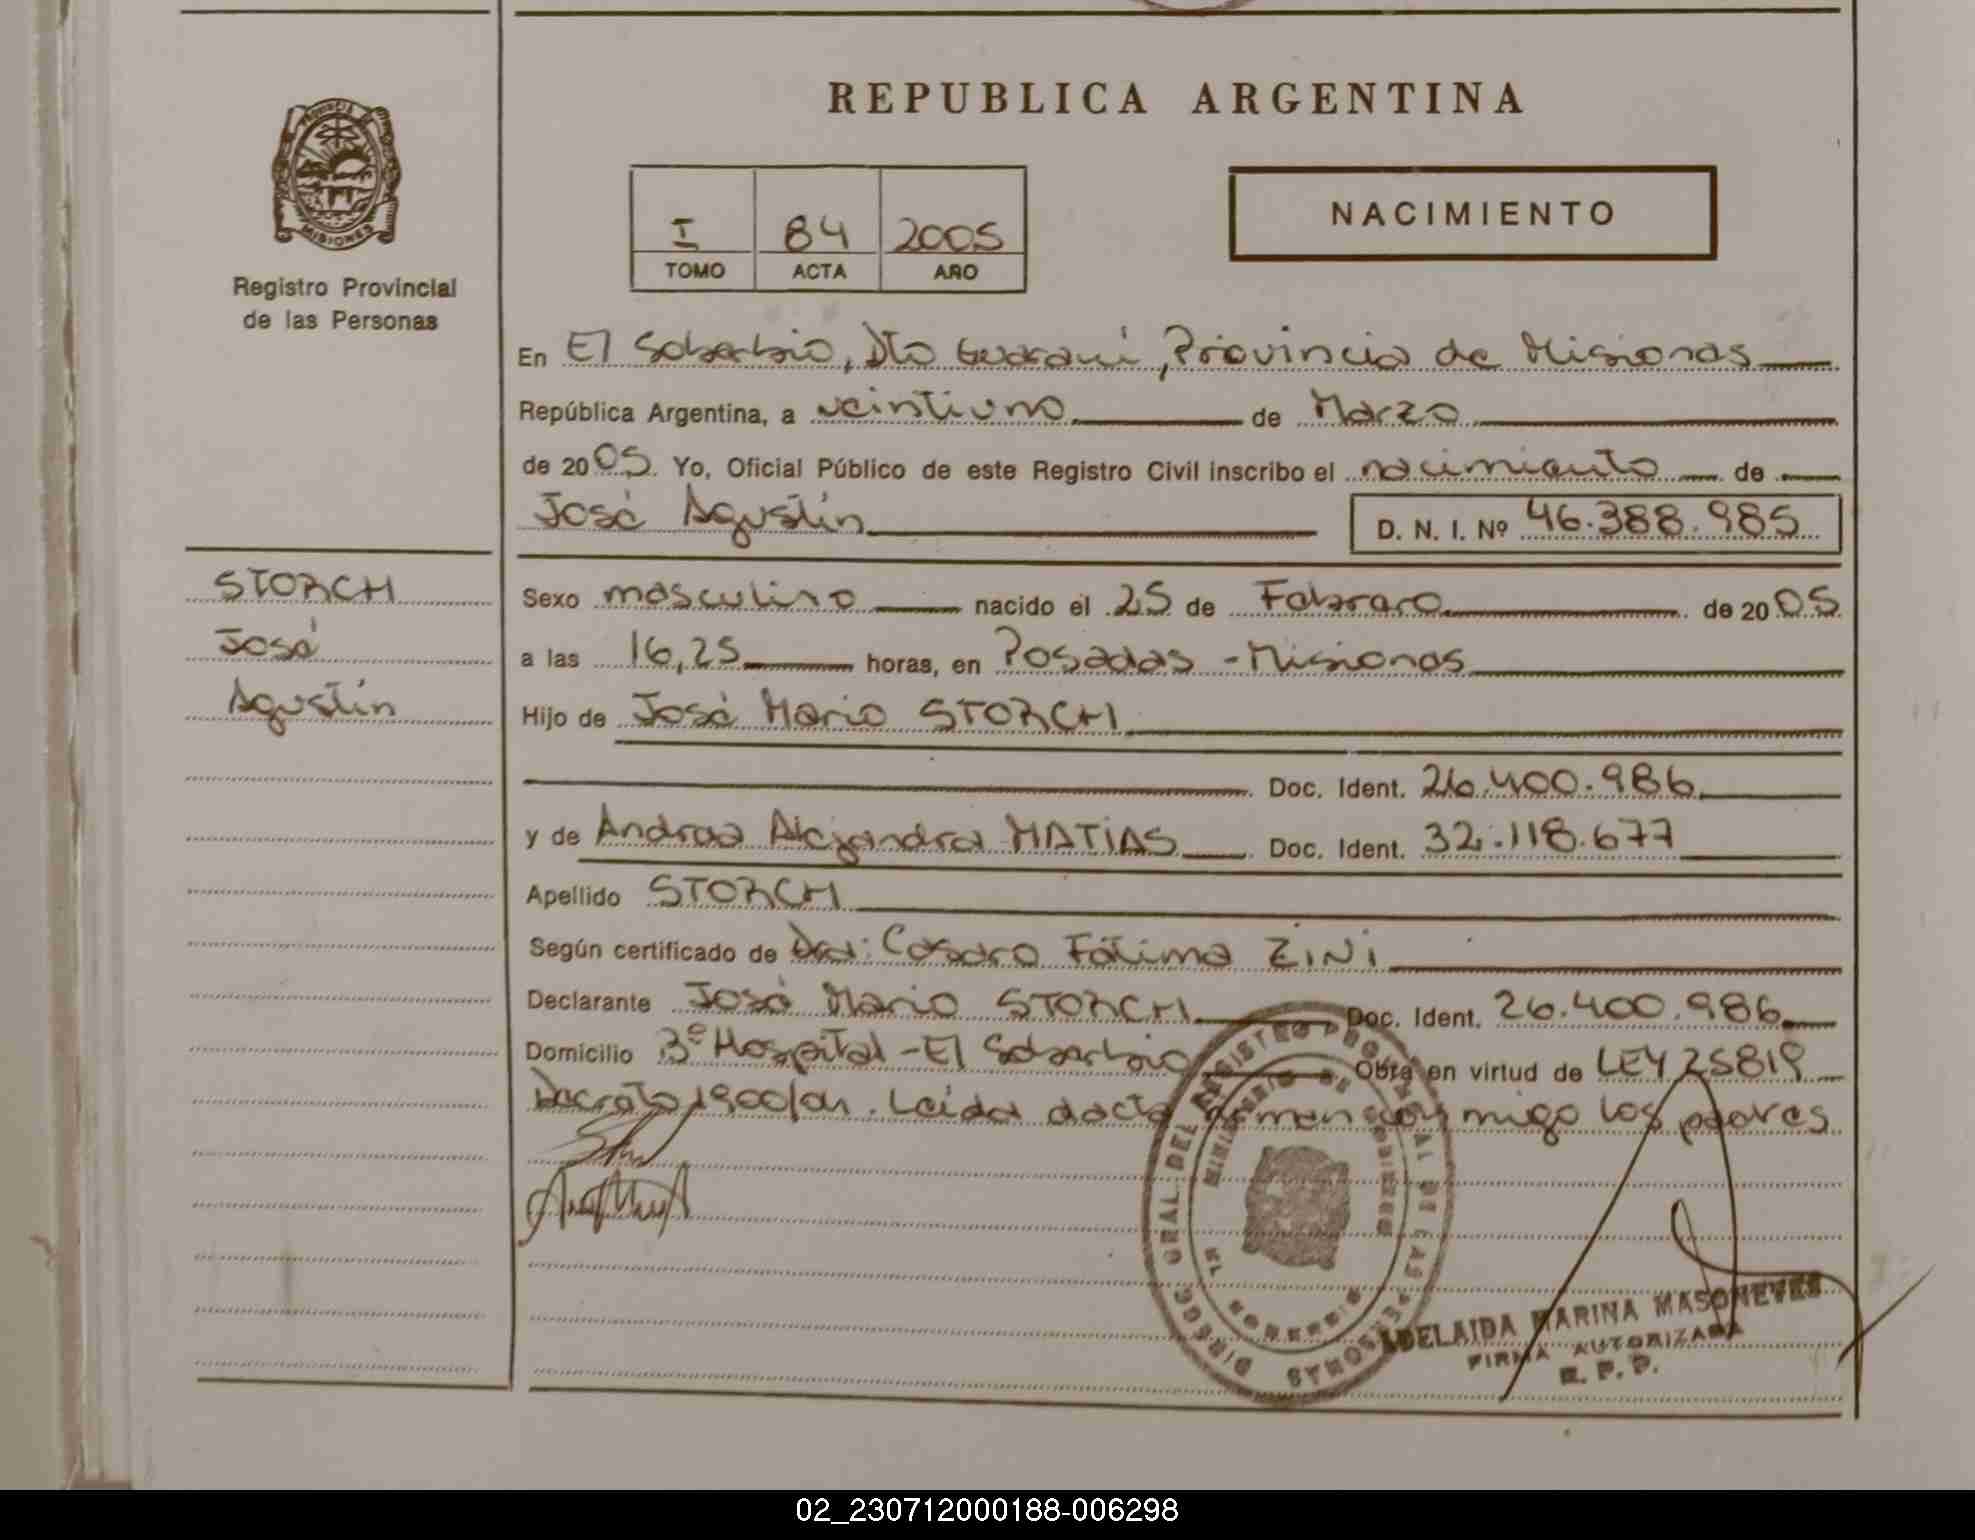 REPUBLICA ARGENTINA
PROVINCIA DE
MISIONES
Registro Provincial
de las Personas
I 84 2005
TOMO ACTA AÑO
NACIMIENTO
En El Soberbio, Dto Guaraní, Provincia de Misiones
República Argentina, a veintiuno de Marzo
de 2005. Yo, Oficial Público de este Registro Civil inscribo el nacimiento de
José Agustín D. N. I. Nº 46.388.985
STORCH
José
Agustín
Sexo masculino nacido el 25 de Febrero de 2005
a las 16,25 horas, en Posadas - Misiones
Hijo de José Mario STORCH
Doc. Ident. 26.400.986
y de Andrea Alejandra MATIAS Doc. Ident. 32.118.677
Apellido STORCH
Según certificado de Dra: Fátima ZINI
Declarante José Mario STORCH Doc. Ident. 26.400.986
Domicilio Bº Hospital - El Soberbio Obra en virtud de LEY 25819
Decreto 1900/04. Leida acta firman con migo los padres
DIRECC. GRAL. DEL REGISTRO PROVINCIAL DE LAS PERSONAS
MINISTERIO DE GOBIERNO
ADELAIDA MARINA MASONEVES
FIRMA AUTORIZADA
R. P. P.
02_230712000188-006298